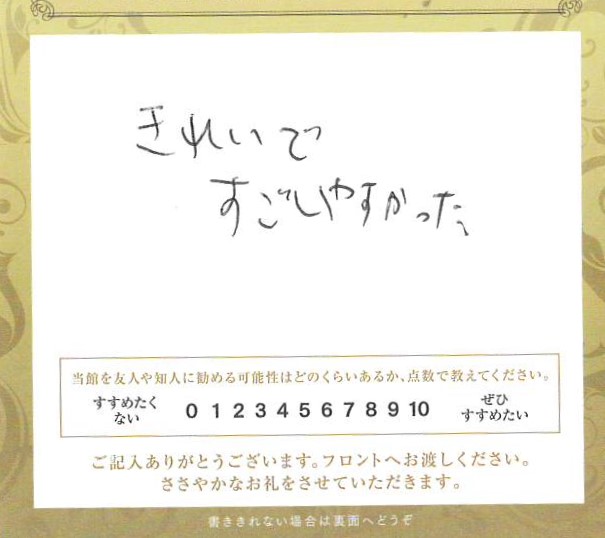 きれいで
すごしやすかった
当館を友人や知人に勧める可能性はどのくらいあるか、点数で教えてください。
すすめたく
ない
0 1 2 3 4 5 6 7 8 9 10
ぜひ
すすめたい
ご記入ありがとうございます。フロントへお渡しください。
ささやかなお礼をさせていただきます。
書ききれない場合は裏面へどうぞ